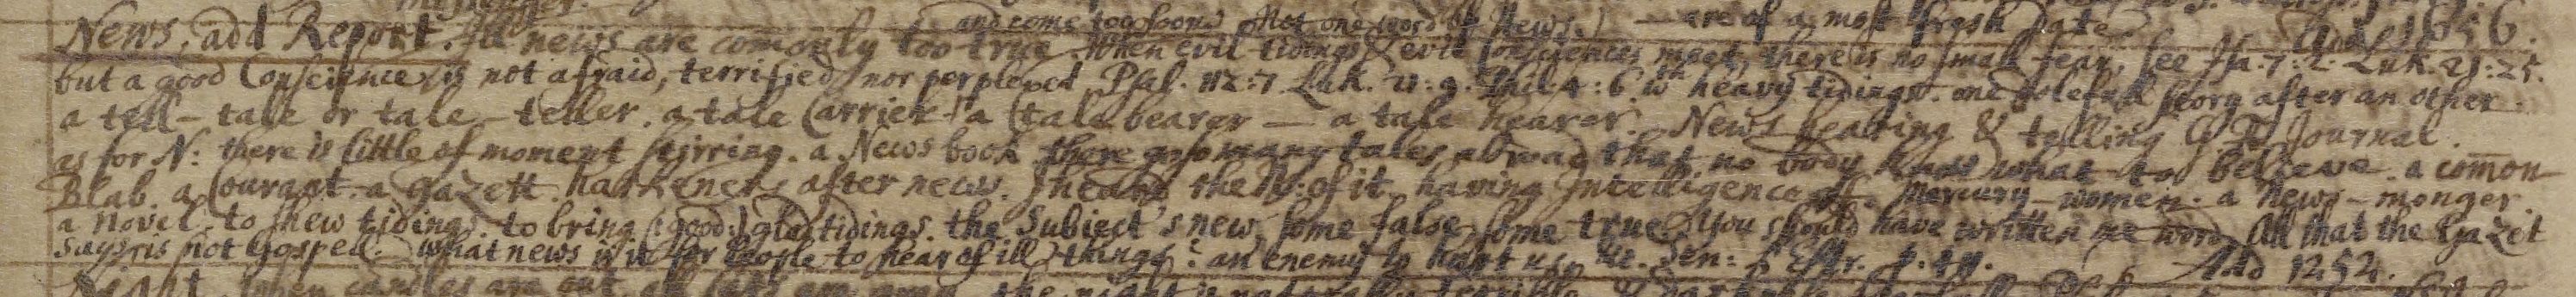 and come too soone. Not one word of News.) — are of a most fresh Date. Add 1656.
News, add Report. Ill news are comonly too true. When evil tidings & evil Consciences meet, there is no small fear, see Isa. 7:2. Luk. 21:25.
but a good Conscience is not afraid, terrified nor perplexed. Psal. 112:7. Luk. 21:9. Phil. 4:6. wth heavy tidings. one dolefull story after an other.
a tell-tale or tale-teller. a tale Carrier. a tale bearer — a tale hearer. News hearing & telling G. F. Journal.
as for N: there is little of moment stirring. a News book there go so many tales abroad that no body knows what to believe. a comon
Blab. a Courant. a Gazett. harkeners after news. I heard the N: of it. having Intelligence of. Mercury-women. a News-monger.
a Novel. to shew tidings. to bring (: good :) glad tidings. the Subject's new. some false some true. You should have written me word. All that the Gazet
says is not Gospel. what news is it for people to hear of ill things? an enemy to hurt us. Sen: Add 1252.
Night. When candles are out, all cats are gray. the night is naturally terrible